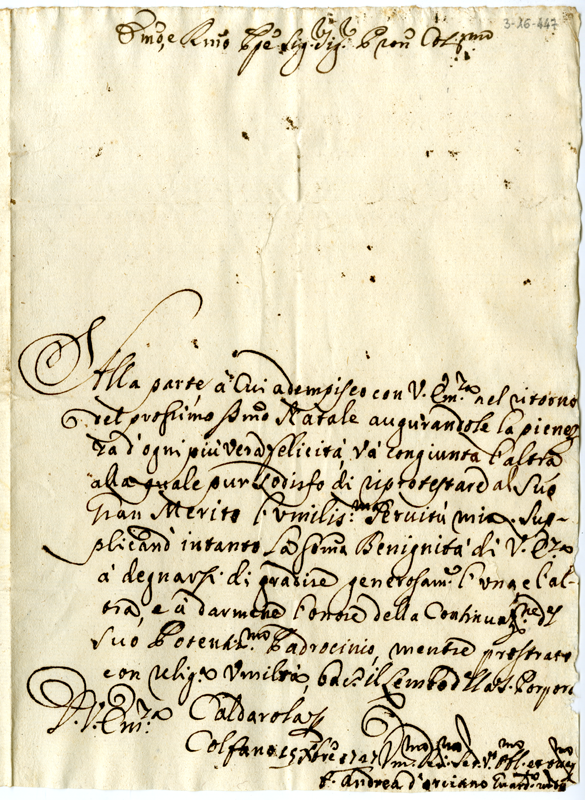 3-X6-447
Emo, e Rmo Ppe Sig: Sig: Pron Colmo
Alla parte, à Cui adempisco con V. Em:za nel ritorno
del prossimo Smo Natale augurandole la pienez
za d'ogni più vera felicità, và congiunta l'altra
alla quale pur sodisfo di riprotestare al Suo
Gran Merito l'umilis:ma Servitù mia. Sup-
plicand intanto La Soma Benignità di V. Eza
à degnarsi di gradire generosam:e l'una e l'al-
tra, e à darmene l'onore della Continuaz:ne del
suo Potentis:mo Padrocinio, mentre prostrato
con relig:a Umiltà, bacio il Lembo della S. Porpora
D. V. Em:za Caldarola
Colfano 15 Xbre 1747
F. Andrea d'